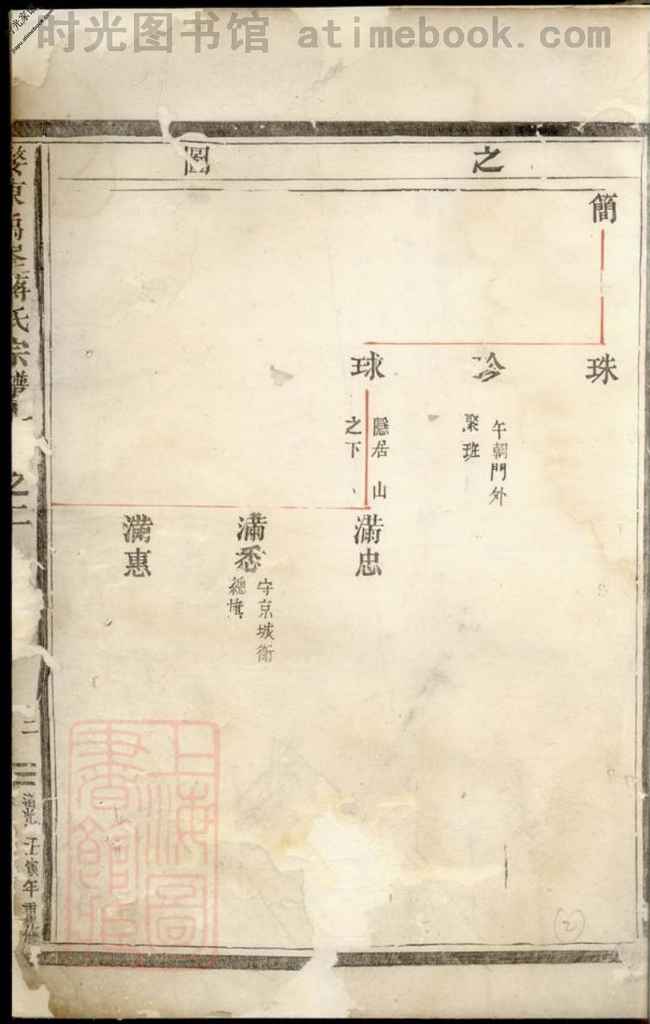 时光图书馆 atimebook.com
之圖
簡
珠
珍
午朝門外
聚班
球
隱居山
之下
滿忠
滿悉
守京城衛
總旗
滿惠
東禹峯蔣氏宗譜
之二
二
道光壬寅年重修
上海圖
書館藏
2